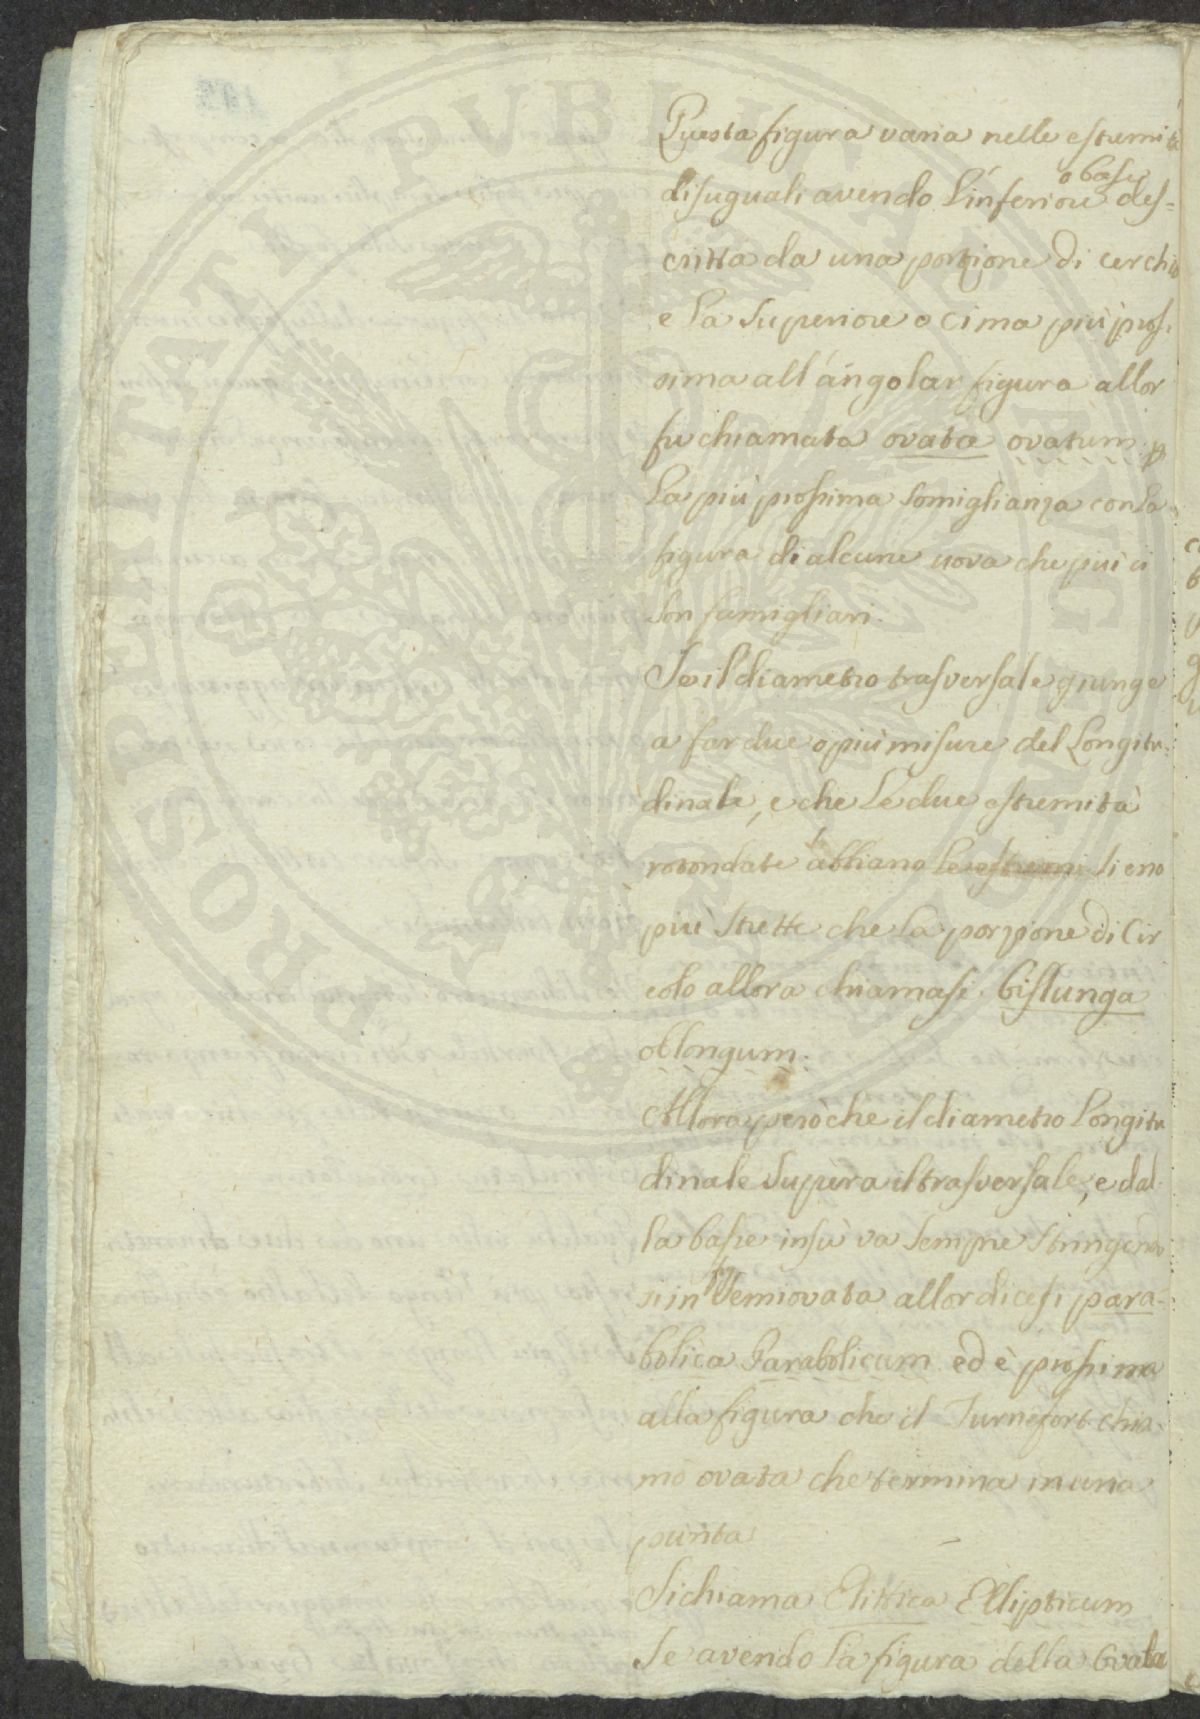 Questa figura varia nelle estremità
disuguali avendo l'inferiore o base des=
critta da una porzione di cerchio
e la superiore o cima più pros=
sima all'ángolar figura allor
fu chiamata ovata ovatum p
la più prossima somiglianza con la
figura di alcune uova che più ci
son famigliari.
Se il diametro trasversale giunge
a far due o più misure del Longitu=
dinale, e che le due estremità
rotondate abbiano le sieno
più strette che la porzione di Cir
colo allora chiamasi bislunga
oblongum.
Allora però che il diametro Longitu
dinale supera il trasversale, e dal=
la base insù va sempre stringendo
si in semiovata allor dicesi para=
bolica Parabolicum ed è prossima
alla figura che il Turnefort chia=
mò ovata che termina in una
punta
Si chiama Elittica Ellipticum
se avendo la figura della Ovata
PROSPERITATI PUBLICAE